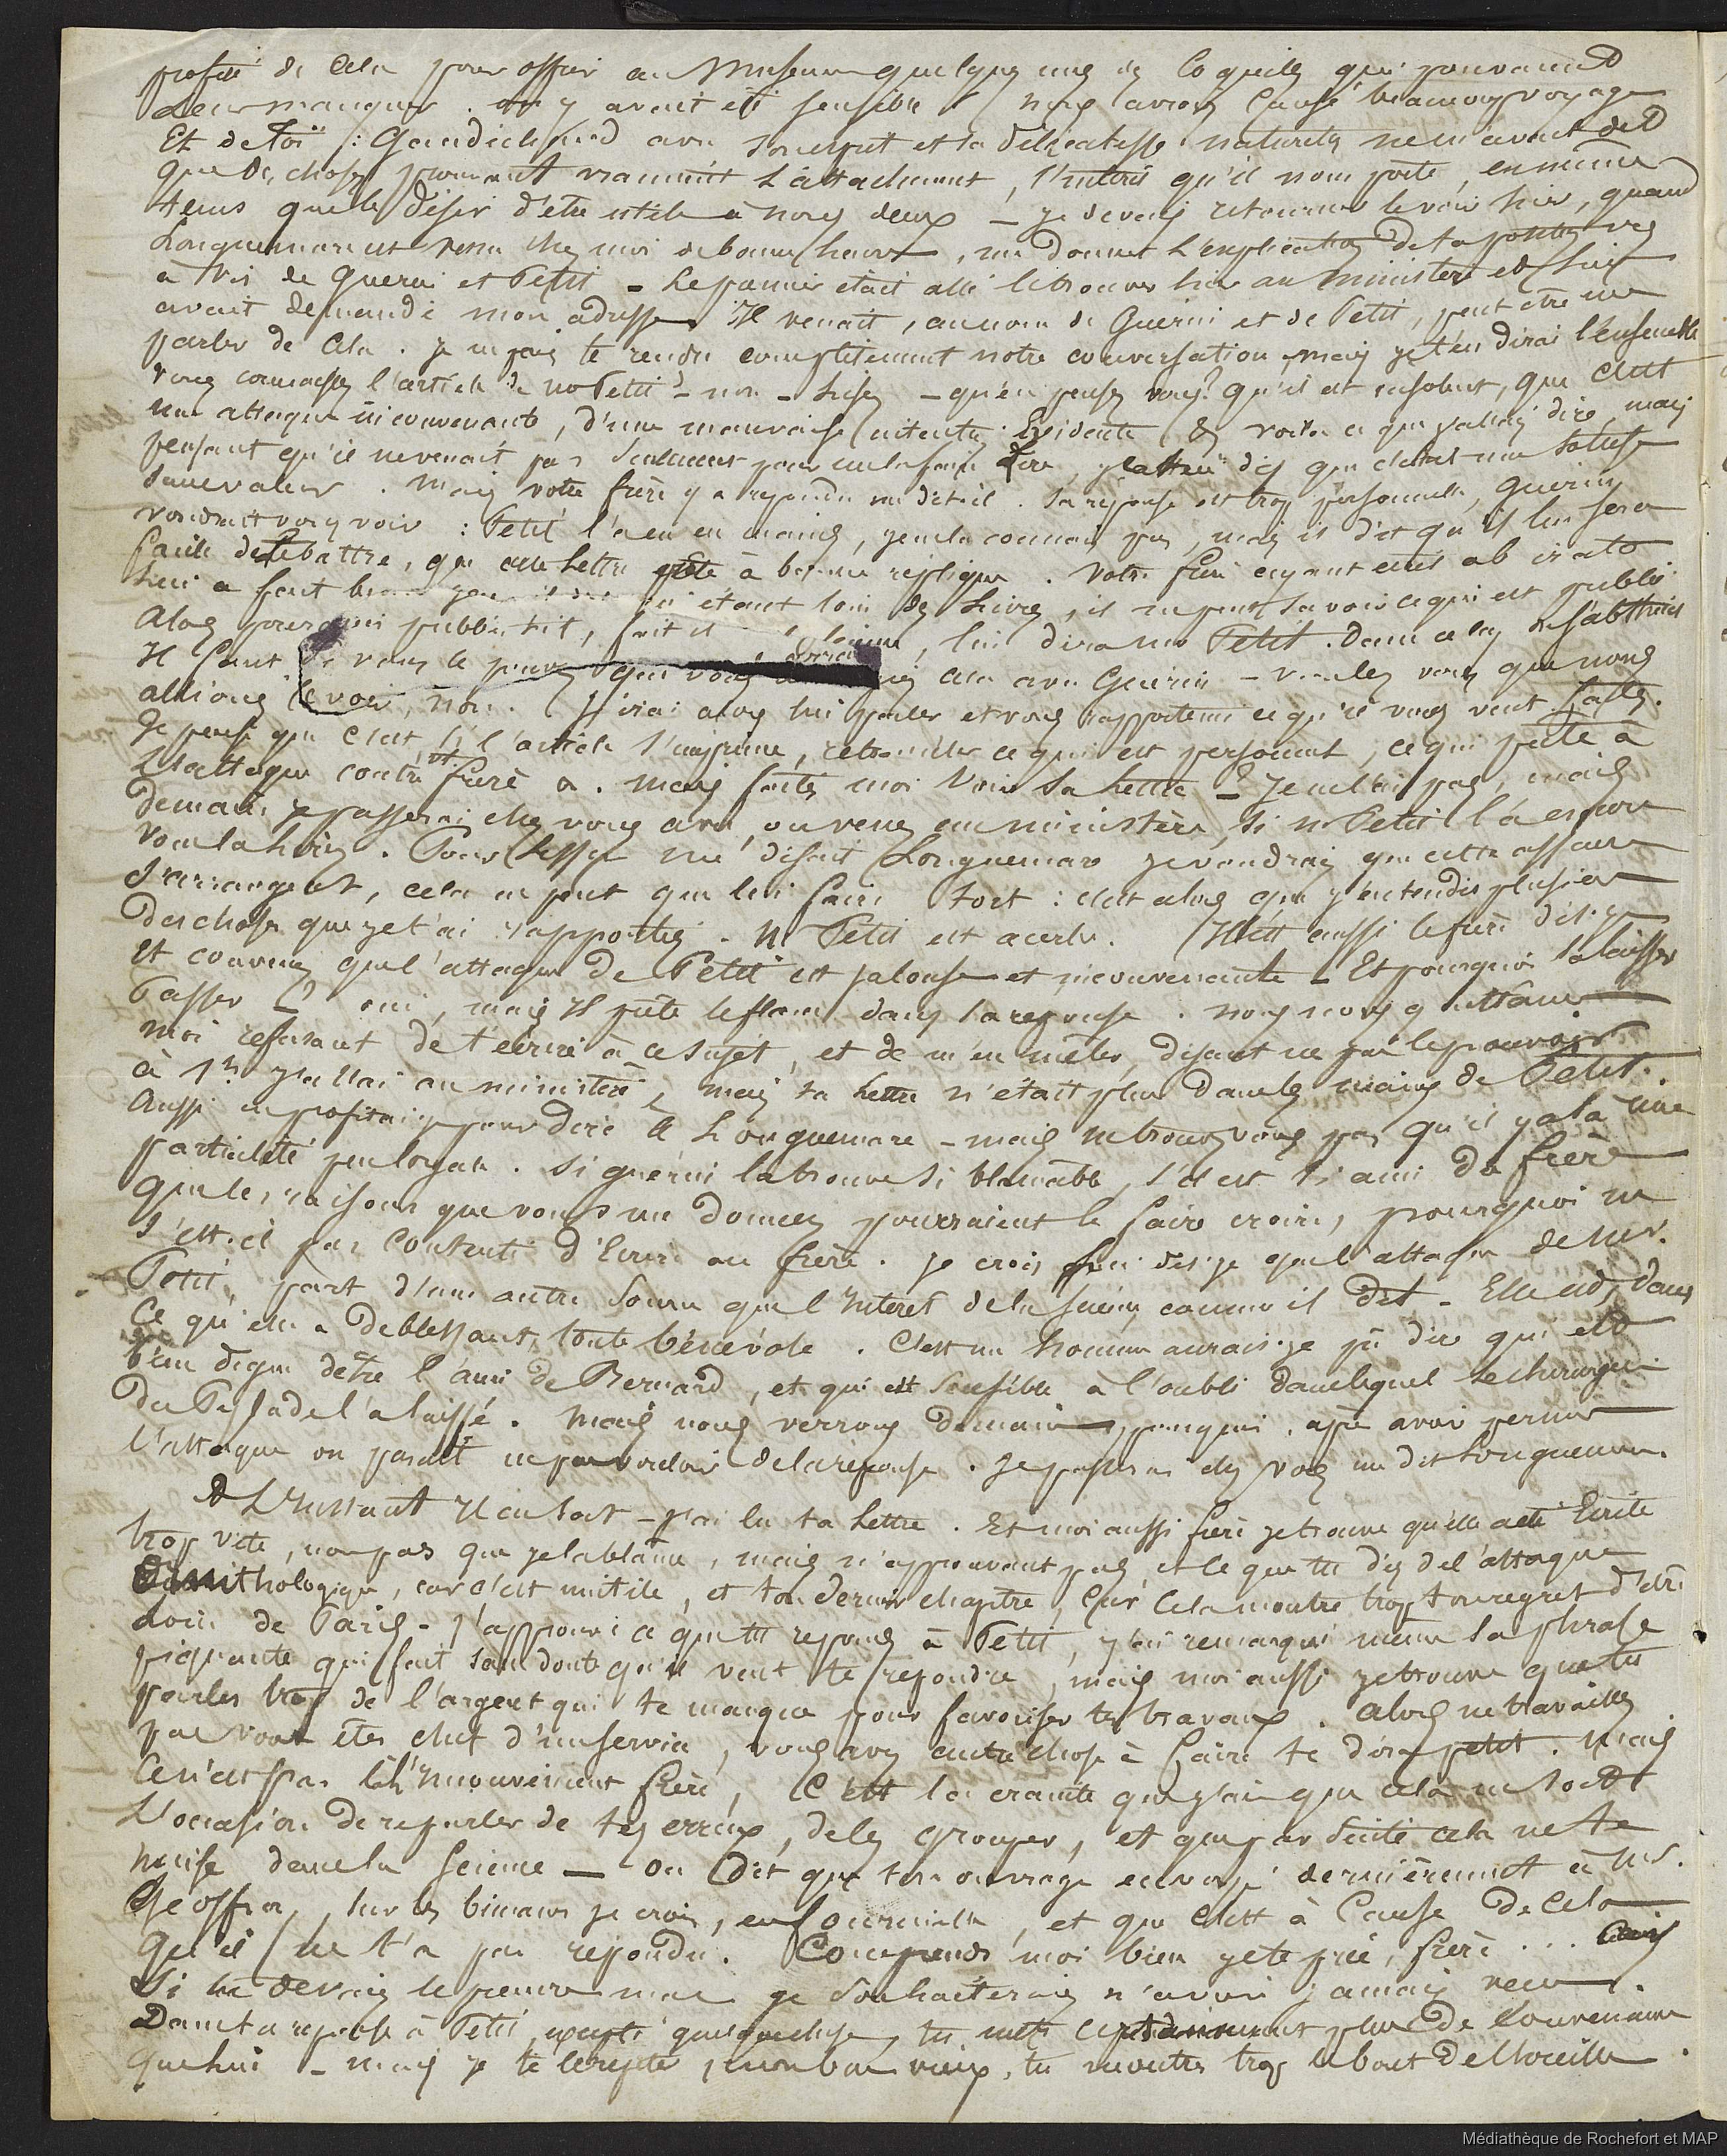 profité de cela pour offrir au Museum quelques unes des Coquilles qui pouvaient
leur manquer. on y avait été sensible. nous avions causé beaucoup voyage
Et de toi : Gaudichaud avec son esprit et sa délicatesse naturels ne m'avait dit
que des choses prouvant vraiment l'attachement, l'interêt qu'il nous porte, en même
tems que le désir d'être utile à nous deux – je devais retourner le voir hier, quand
Longuemare est venu chez moi de bonne heure, me donner l'explication de ta position vis
à vis de Guerin et Petit – Le premier était allé le trouver hier au ministère et lui
avait demandé mon adresse. Il venait, au nom de Guerin et de Petit, peut être me
parler de cela. je ne puis te rendre complètement notre conversation, mais je t'en dirai l'ensemble
vous connaissez l'article de mr Petit ? – non – Lisez – qu'en pensez vous? qu'il est insolent, que c'est
une attaque inconvenante, d'une mauvaise intention évidente, voilà ce que j'allais dire, mais
pensant qu'il ne venait pas seulement pour me le faire lire, je dis que c'était une sottise
sans valeur. mais votre frère y a repondu en détail. Sa réponse est trop personnelle, Guerin
voudrait vous voir : Petit l'a eu en mains, je ne la connais pas, mais il dit qu'il lui sera
facile de se battre, que cette Lettre prête à bonne replique. Votre frère ayant écrit ab irato
lui a fait beau jeu étant loin des Livres, il ne peut savoir ce qui est publié
Alors pourquoi publie-t-il, fait il lui dira mr Petit. dans ce cas
Il faut si vous le pouvez que vous cela avec Guerin – voulez vous que nous
allions le voir, non. J'irai alors lui parler et vous rapporterai ce qu'il vous veut faites.
Je pense que c'est, si l'article s'imprime, retrancher ce qui est personnel, ce qui prête à
l'attaque contre vt. frère. mais faites moi voir sa Lettre – ? Je ne l'ai pas, mais
demain je passerai chez vous avec, ou venez au ministère, si mr Petit l'a encore
vous la lirez. Pour Lesson me disait Longuemare je voudrais que cette affaire
s'arrangeat, cela ne peut que lui faire tort : c'est alors que j'entendis plusieurs
des choses que je t'ai rapportées. Mr Petit est acerbe. Il l'est aussi le frère dis-je
et convenez que l'attaque de Petit est jalouse et inconvenante – Et pourquoi la laisser
Passer ? oui, mais il prête le flanc dans sa réponse. nous nous quittâmes
moi refusant de t'écrire à ce sujet, et de m'en mêler, disant ne pas le pouvoir
à 1h j'allai au ministère, mais ta Lettre n'était plus dans les mains de Petit.
Aussi en profitai-je pour dire à Longuemare – mais ne trouvez vous pas qu'il y a là une
partialité peu loyale. Si guerin la trouve si blamable, s'il est si ami du frère
que les raisons que vous me donnez pourraient le faire croire, pourquoi ne
s'est-il pas contenté d'écrire au frère. je crois lui dis-je que l'attaque de Mr.
Petit, part d'une autre source que l'interêt de la science, comme il dit – Elle est, dans
Ce qu'elle a de blessant, toute bénévole. C'est un homme aurais-je pu dire qui est
bien digne d'être l'ami de Bernard, et qui est sensible à l'oubli dans lequel le chirurgien
de l'a laissé. mais nous verrons demain, pourquoi, après avoir permis
l'attaque on parait ne pas vouloir de la réponse. Je passerai chez vous me dit Longuemare.
à L'Instant Il en sort – j'ai lu ta Lettre. Et moi aussi frère je trouve qu'elle a été Ecrite
trop vite, non pas que je la blâme, mais n'approuvant pas, et ce que tu dis de l'attaque
Ornithologique, car c'est inutile, et ton dernier chapitre, car Cela montre trop ton regret d'être
loin de Paris – J'approuve ce que tu repons à Petit, j'ai remarqué même la phrase
piquante qui fait sans doute qu'il veut te répondre, mais moi aussi je trouve que tu
parles trop de l'argent qui te manque pour favoriser tes travaux. Alors ne travaillez
pas vous êtes chef d'un service, vous avez autre chose à faire te dira petit. Mais
Ce n'est pas là l'inconvenient frère, C'est la crainte que j'ai que cela ne soit
L'occasion de reparler de tes erreurs, de les grouper, et que par suite cela ne te
nuise dans la science – on dit que ton ouvrage envoyé dernièrement à Mr.
Geoffroy, sur les bimanes je crois, en fourmille, et que c'est à Cause de Cela
qu'il ne t'a pas repondu. Comprends moi bien je te prie, frère . . .
Si tu devais le prendre mal je souhaiterais n'avoir jamais recu.
Dans ta reponse à Petit, excepté quelque chose, tu mets certainement plus de Convenance
que lui – mais je te le repête, mon bon vieux, tu montres trop le bout de l'Oreille.
Médiathèque de Rochefort et MAP